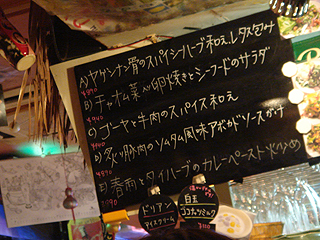 A) ヤゲンナン骨のスパイシーハーブ和え レタス包み
¥890
B) チャオム菜入り卵焼きとシーフードのサラダ
¥940
C) ゴーヤと牛肉のスパイス和え
D) 炙り豚肉のソムタム風味アボカドソースがけ
¥890
E) 春雨とタイハーブのカレーペースト炒め
ドリアン
アイスクリーム
自玉
ココナッツミルク